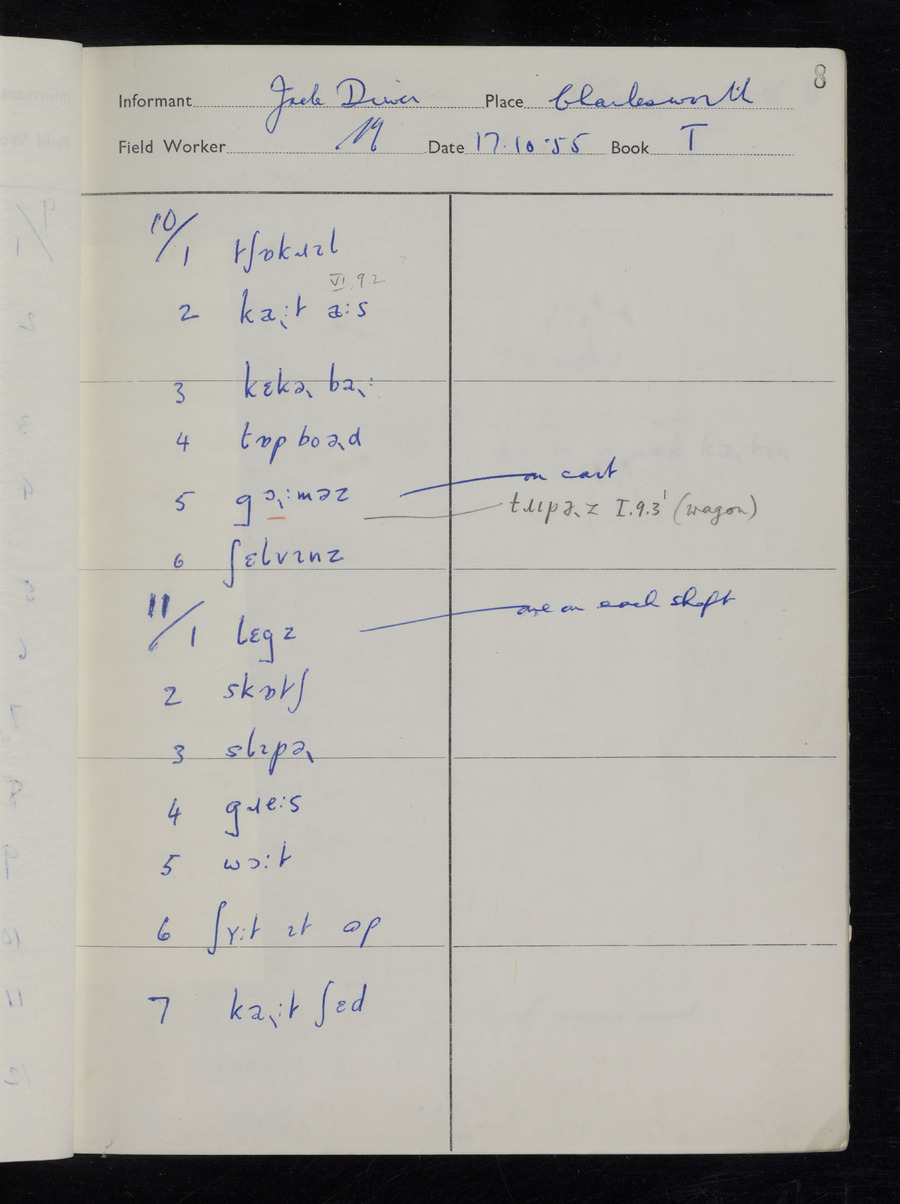 8
Informant Jack Driver Place Charlesworth
Field Worker Date 17.10.55 Book T
10/
1 tʃɒkɹɪl
VI.9 2
2 ka˞:t a:s
3 kɛkə˞ ba˞:
4 tɒp boə˞d
5 gɔ˞:məz on cart
tɹɪpə˞z I.9.3¹ (wagon)
6 ʃɛlvɪnz
11/
1 lɛgz one on each shaft
2 skɒtʃ
3 slɪpə˞
4 gɹe:s
5 wɔ:t
6 ʃʏ:t ɪt
7 ka˞:t ʃɛd